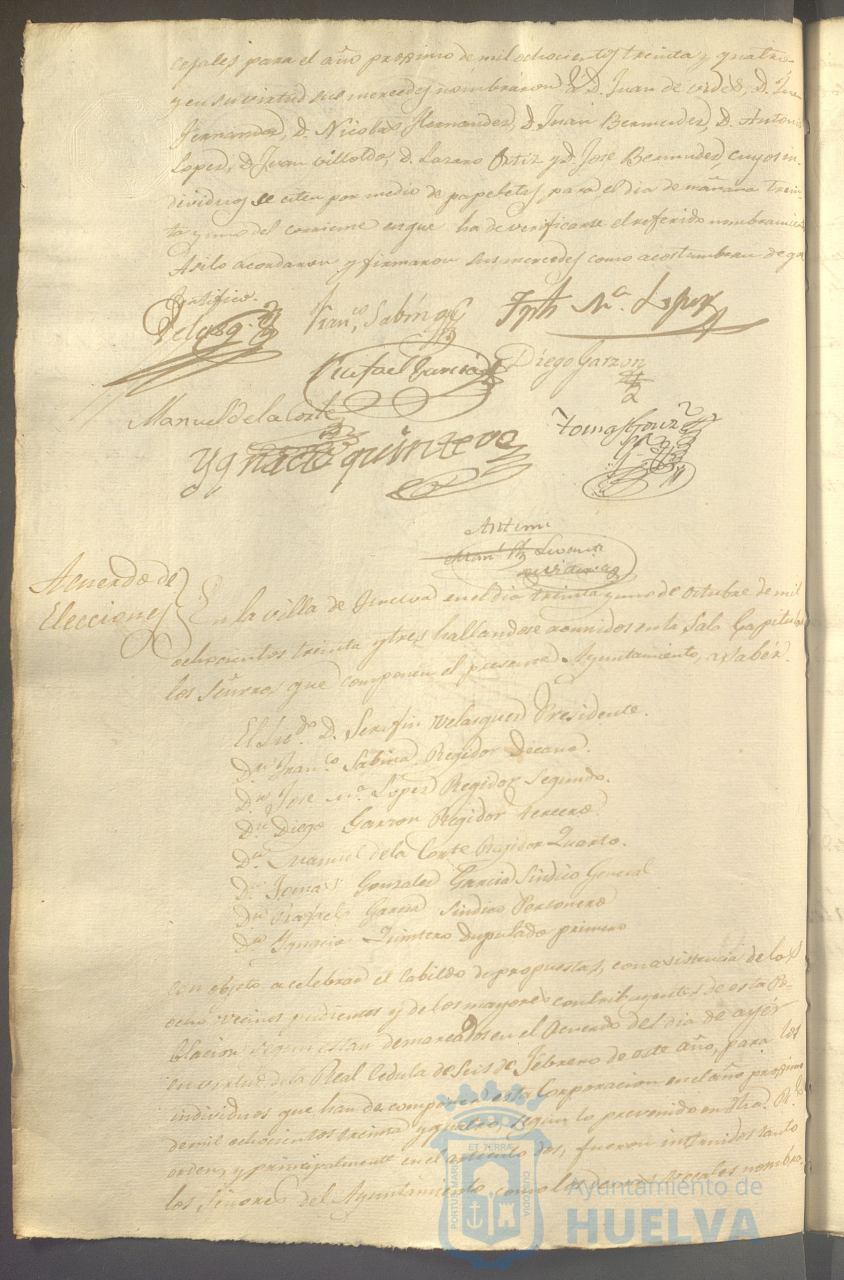 cejales para el año procsimo de mil ochocientos treinta y quatro
y en su virtud sus mercedes nombraron á D. Juan de D. Jose
Fernandez, D. Nicolas Hernandez, D. Juan Bermudez, D. Antonio
Lopez, D. Juan Villoldo, D. Lazaro Ortiz y D. Jose Bermudez cuyos in-
dividuos se citen por medio de papeletas para el dia de mañana trein-
ta y uno del corriente en que ha de verificarse el referido nombramiento
Asi lo acordaron y firmaron sus mercedes como acostumbran de q.e
Certifico.
Velasq.z Fran.co Sabina Jph M.a Lopez
Rafael Garcia Diego Garzon
Manuel de la Corte
Ygnacio quintero Tomas Gonz.z
Antemi
Man.l
Acuerdo de
Elecciones
En la villa de Huelva en el dia treinta y uno de octubre de mil
ochocientos treinta y tres hallandose reunidos en la Sala Capitular
los Señores que componen el presente Ayuntamiento, a saber.
El Lic.do D. Serafin Velasquez Presidente.
D.n Fran.co Sabina Regidor Decano.
D.n Jose M.a Lopez Regidor Segundo.
D.n Diego Garzon Regidor tercero
D.n Manuel de la Corte Regidor Quarto.
D.n Tomas Gonzalez Garcia Sindico General
D.n Rafael Garcia Sindico Personero
D.n Ygnacio Quintero Diputado primero
con objeto a celebrar el Cabildo de propuestas, con asistencia de los
ocho vecinos pudientes y de los mayores contribuyentes de esta Po-
blacion segun estan demarcados en el Acuerdo del dia de ayér
en virtud de la Real Cedula de seis de Febrero de este año, para los
individuos que han de componer esta Corporacion en el año procsimo
de mil ochocientos treinta y quatro, segun lo prevenido en otra R.l
orden, y principalmente en el articulo dos, fueron instruidos tanto
los Señores del Ayuntamiento, como los demas vocales nombra-
PORTUS MARIS
ET TERRAE
CUSTODIA
Ayuntamiento de
HUELVA